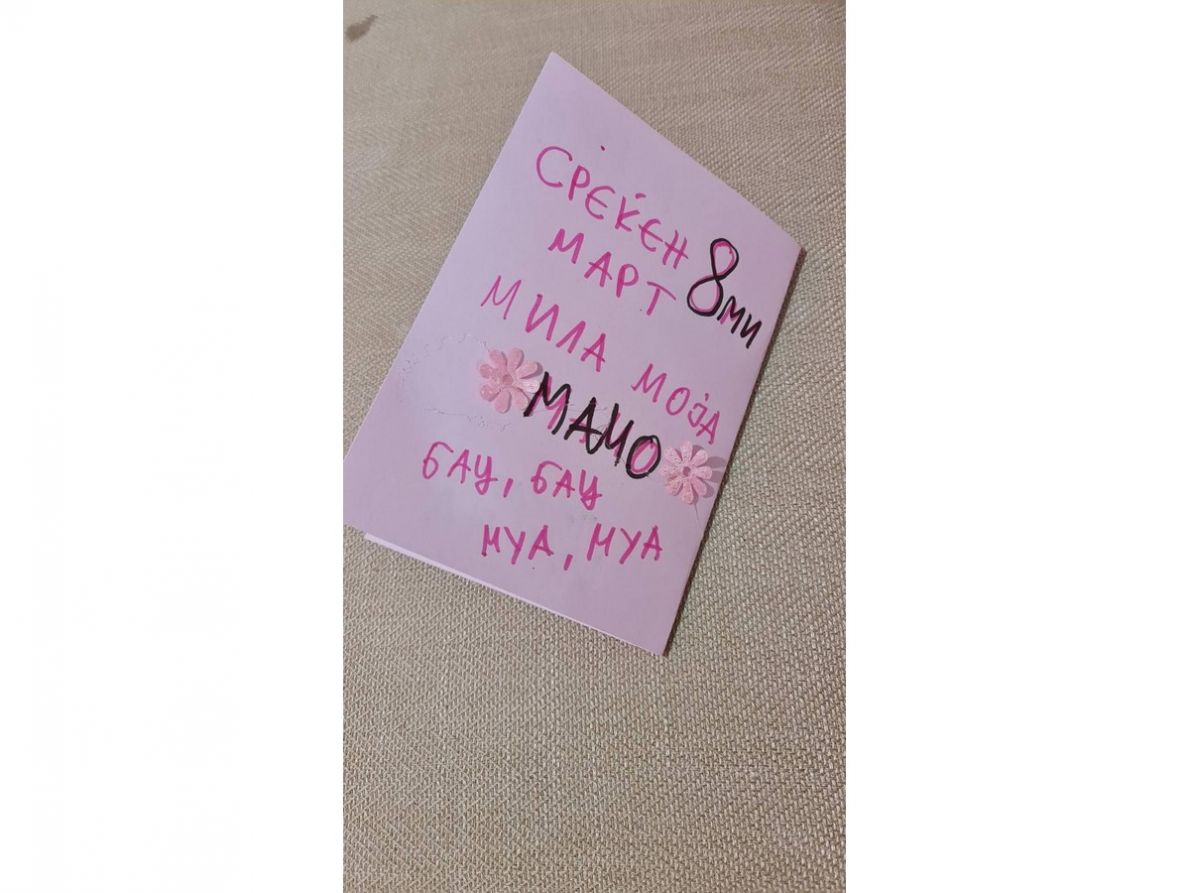 СРЕЌЕН 8ми
МАРТ
МИЛА МОЈА
МАМО
БАЦ, БАЦ
МУА, МУА